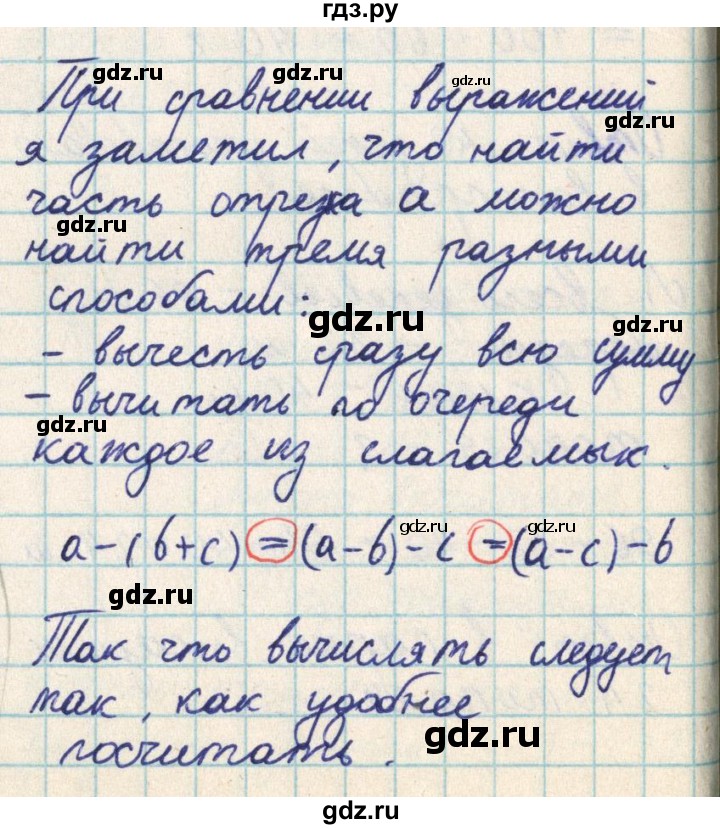 гдз.ру
gdz.ru
gdz.ru
При сравнении выражений
gdz.ru
я заметил, что найти
gdz.ru
часть отрезка а можно
gdz.ru
найти тремя разными
gdz.ru
способами:
gdz.ru
- вычесть сразу всю сумму
- вычитать по очереди
gdz.ru
каждое из слагаемых.
gdz.ru
gdz.ru
a-(b+c)=(a-b)-c=(a-c)-b
gdz.ru
Так что вычислять следует
так, как удобнее
gdz.ru
посчитать.
gdz.ru